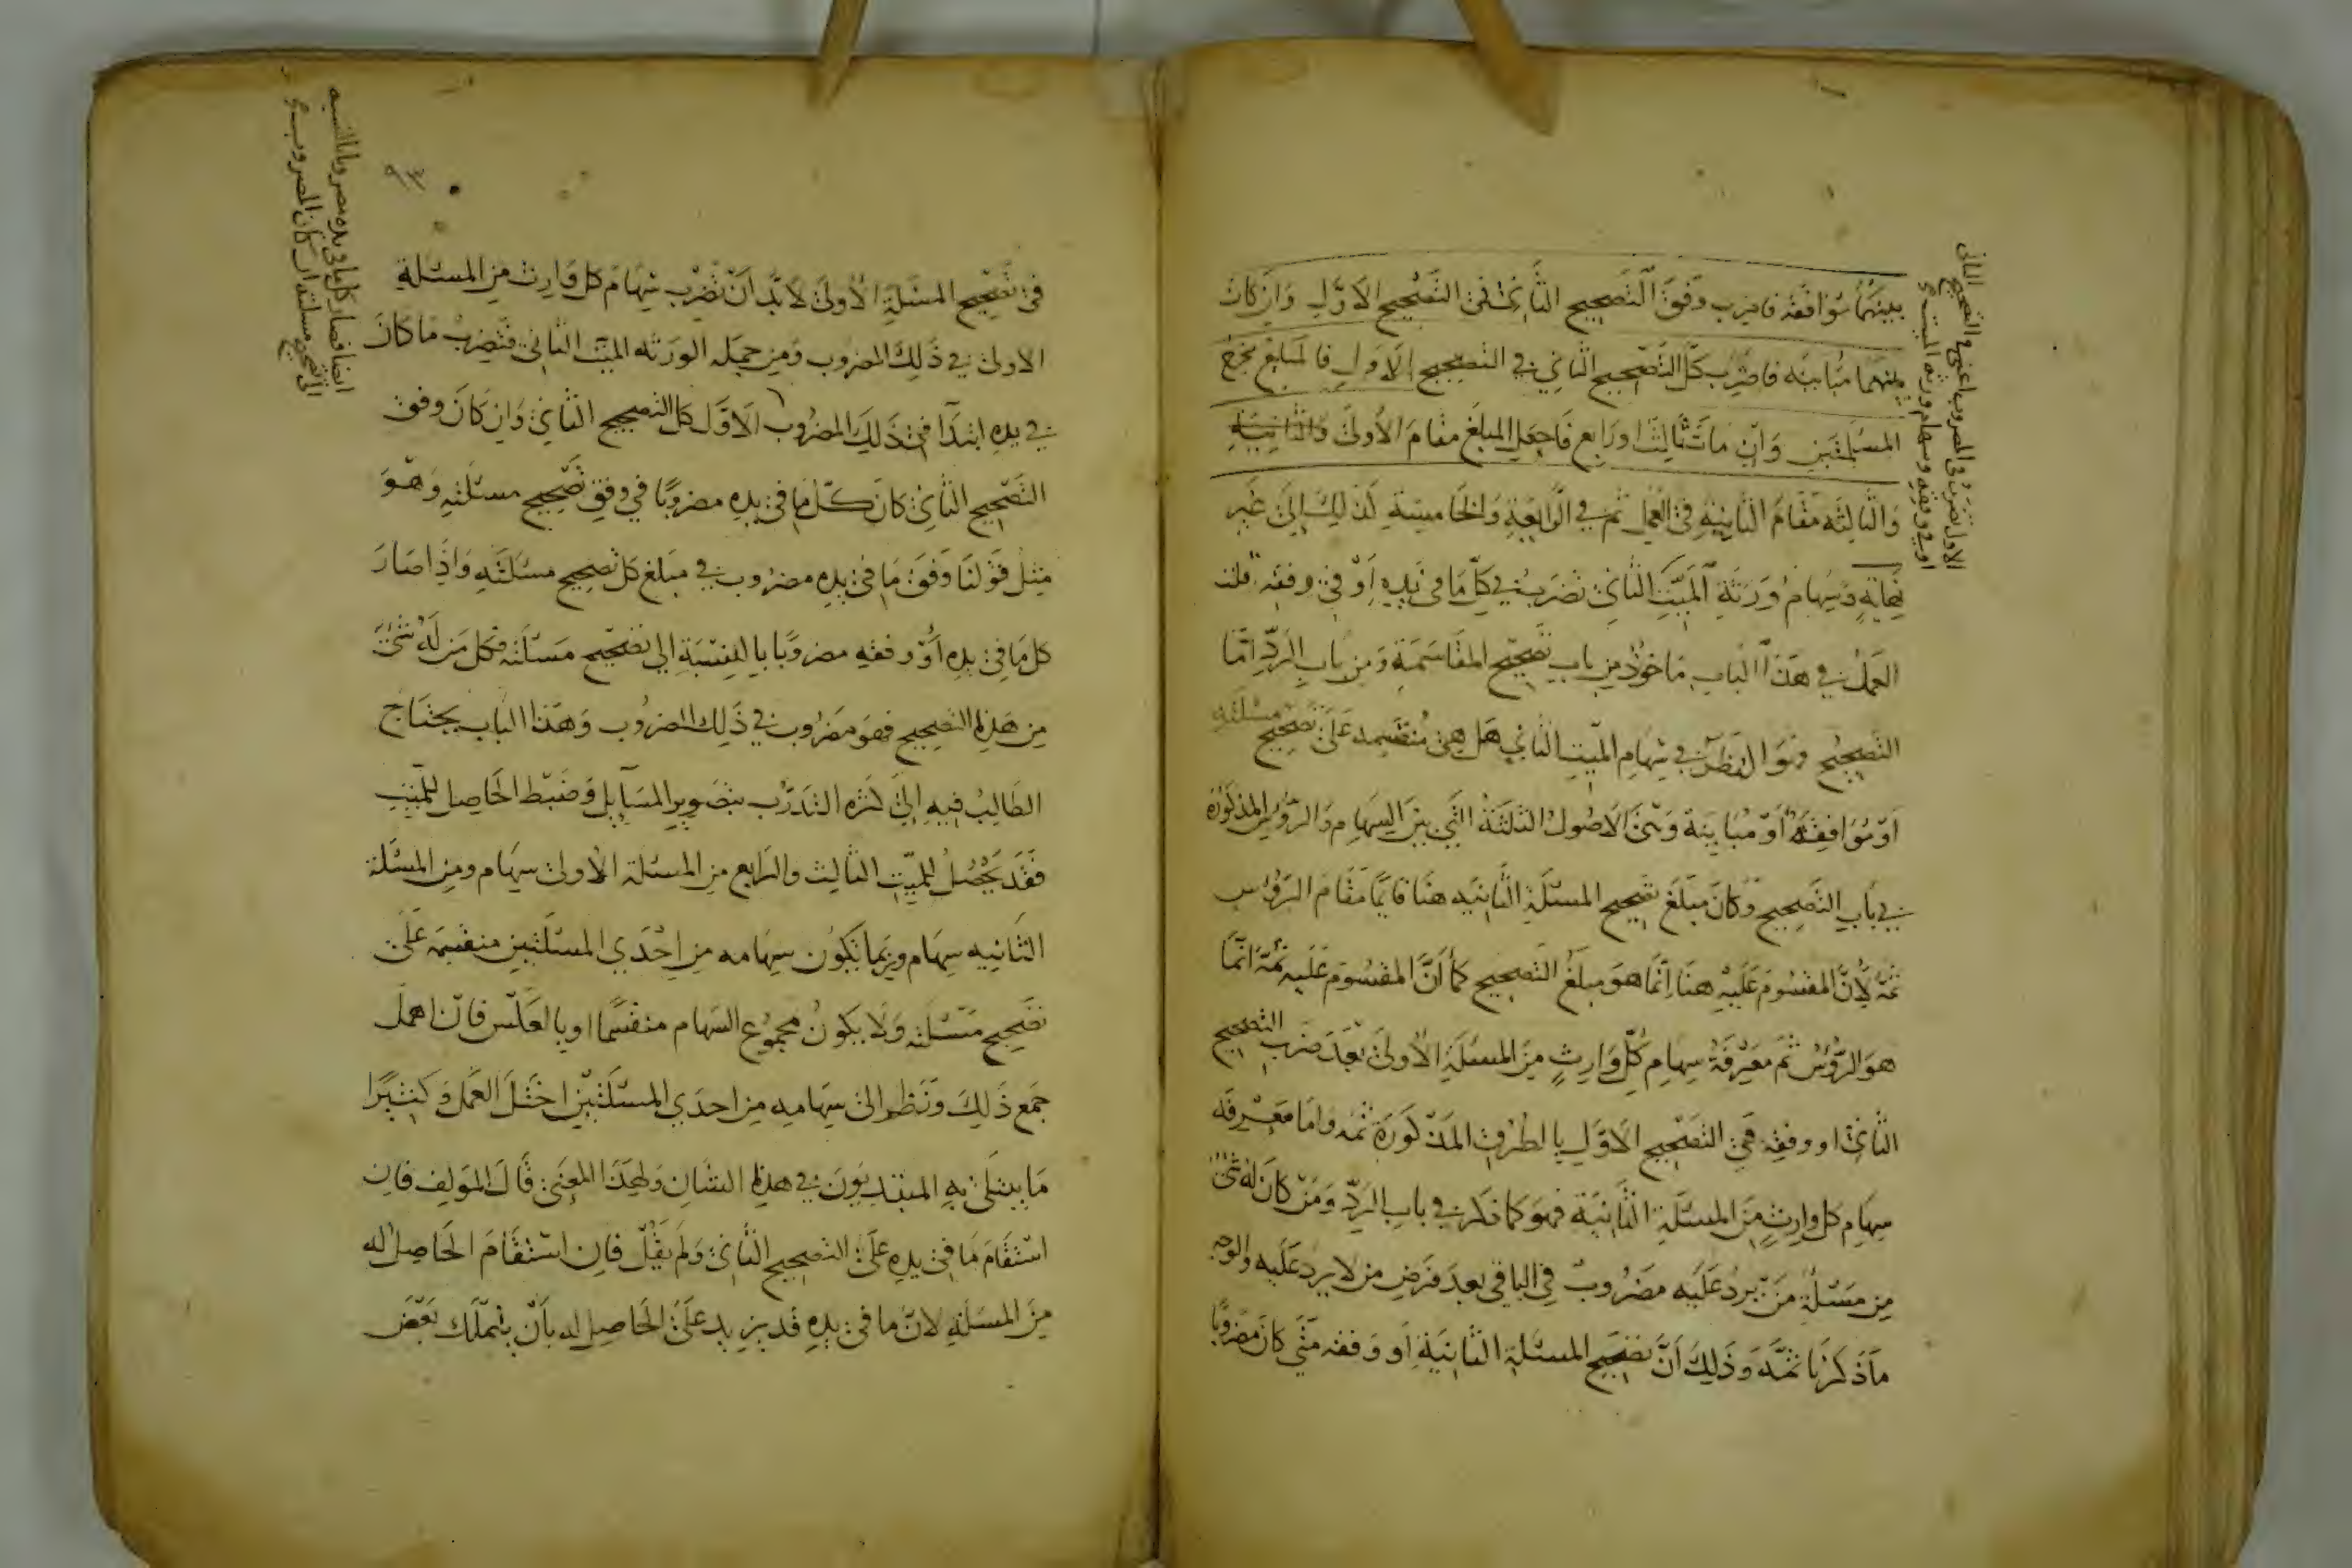 بينهما موافقه فاضرب وفق التصحيح الثاني في التصحيح الاول وان كان
بينهما مباينه فاضرب كل التصحيح الثاني في التصحيح الاول فالمبلغ مخرج
المسئلتين وان مات ثالث او رابع فاجعل المبلغ مقام الاولى والثانية
والثالثه مقام الثانيه في العمل ثم في الرابعة والخامسة كذلك الى غير
نهاية وسهام ورثة الميت الثاني تضرب في كل ما في يده او في وفقه قلت
العمل في هذا الباب ماخوذ من باب تصحيح المقاسمة ومن باب الرد امّا
التصحيح فهو النظر في سهام الميت الثاني هل هي منقسمه على تصحيح مسئلته
او موافقة او مباينة وهي الاصول الثلثة التي بين السهام والرؤس المذكورة
في باب التصحيح وكان مبلغ تصحيح المسئلة الثانيه هنا قايما مقام الرؤس
ثمه لان المقسوم عليه هنا انما هو مبلغ التصحيح كما ان المقسوم عليه ثمة انما
هو الرؤس ثم معرفة سهام كل وارث من المسئلة الاولى بعد ضرب التصحيح
الثاني او وفقه في التصحيح الاول بالطرق المذكورة ثمه واما معرفه
سهام كل وارث من المسئلة الثانية فهو كما ذكر في باب الرد ومن كان له شئ
من مسئلة من يرد عليه مضروب في الباقي بعد فرض من لا يرد عليه والوجه
ما ذكرنا ثمه وذلك ان تصحيح المسئلة الثانية او وفقه متى كان مضروبا
الاول تضرب في المضروب اعني في التصحيح الثاني
او في وفقه وسهام ورثه الميت
٩٣
في تصحيح المسئلة الاولى لابد ان تضرب سهام كل وارث من المسئلة
الاولى في ذلك المضروب ومن جمله الورثه الميت الثاني فتضرب ما كان
في يده ابتدآ في ذلك المضروب الاول كل التصحيح الثاني وان كان وفق
التصحيح الثاني كان كل ما في يده مضروبا في وفق تصحيح مسئلته وهو
مثل قولنا وفق ما في يده مضروب في مبلغ كل تصحيح مسئلته واذا صار
كل ما في يده او وفقه مضروبا بالنسبة الى تصحيح مسئلته فكل من له شئ
من هذا التصحيح فهو مضروب في ذلك المضروب وهذا الباب يحتاج
الطالب فيه الى كثره التدرب بتصوير المسايل وضبط الحاصل للميت
فقد يحصل للميت الثالث والرابع من المسئلة الاولى سهام ومن المسئلة
الثانيه سهام وربما تكون سهامه من احدى المسئلتين منقسمة على
تصحيح مسئلته ولا يكون مجموع السهام منقسما او بالعكس فان اهمل
جمع ذلك ونظر الى سهامه من احدى المسئلتين اختل العمل وكثيرا
ما يبتلى به المبتديون في هذا الشان ولهذا المعنى قال المولف فان
استقام ما في يده على التصحيح الثاني ولم يقل فان استقام الحاصل له
من المسئلة لان ما في يده قد يزيد على الحاصل له بان يتملك بعض
ايضا فصار كل ما في يده مضروبا بالنسبه
الى تصحيح مسئلته ان كان المضروب